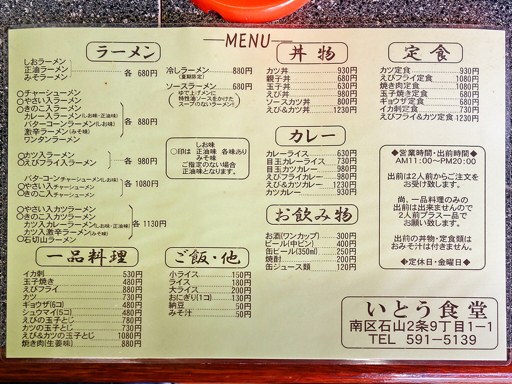 MENU
ラーメン
しおラーメン
正油ラーメン
みそラーメン
各 680円
○チャーシューメン
○やさい入ラーメン
○きのこ入ラーメン
カレー入ラーメン(しお味・正油味)
バターコーンラーメン(しお味)
激辛ラーメン(みそ味)
ワンタンラーメン
各 880円
○カツ入ラーメン
○えびフライ入ラーメン
各 980円
バターコーンチャーシューメン(しお味)
○やさい入チャーシューメン
○きのこ入チャーシューメン
各 1080円
○やさい入カツラーメン
○きのこ入カツラーメン
カツ入カレーラーメン(しお味・正油味)
カツ入激辛ラーメン(みそ味)
○石切山ラーメン
各 1130円
冷しラーメン 880円
(夏期限定)
ソースラーメン 680円
ゆで上げメンに
特性油ソースをかけた
スープのないラーメン
○印は
しお味
正油味
みそ味
各味あり
ご指定のない場合
正油味となります。
丼物
カツ丼 930円
親子丼 680円
玉子丼 630円
えび丼 980円
ソースカツ丼 800円
えび&カツ丼 1230円
カレー
カレーライス 630円
目玉カレーライス 730円
目玉カツカレー 1030円
えびフライカレー 980円
えび&カツカレー 1230円
カツカレー 930円
お飲み物
お酒(ワンカップ) 300円
ビール(中ビン) 400円
缶ビール(350ml) 250円
焼酎 200円
缶ジュース類 120円
定食
カツ定食 930円
えびフライ定食 1080円
焼き肉定食 1080円
玉子焼き定食 680円
ギョウザ定食 680円
イカ刺定食 730円
えびフライ&カツ定食 1230円
◆営業時間・出前時間◆
AM11:00~PM20:00
出前は2人前からご注文を
お受け致します。
尚、一品料理のみの
出前は出来ませんので
2人前プラス一品で
お願い致します。
出前の丼物・定食類は
おみそ汁は付きません。
◆定休日・金曜日◆
一品料理
イカ刺 530円
玉子焼き 480円
えびフライ 880円
カツ 730円
ギョウザ(6コ) 480円
シュウマイ(5コ) 480円
えびの玉子とじ 780円
カツの玉子とじ 730円
えび&カツの玉子とじ 1080円
焼き肉(生姜味) 880円
ご飯・他
小ライス 150円
ライス 180円
大ライス 200円
おにぎり(1コ) 130円
納豆 50円
みそ汁 50円
いとう食堂
南区石山2条9丁目1-1
TEL 591-5139